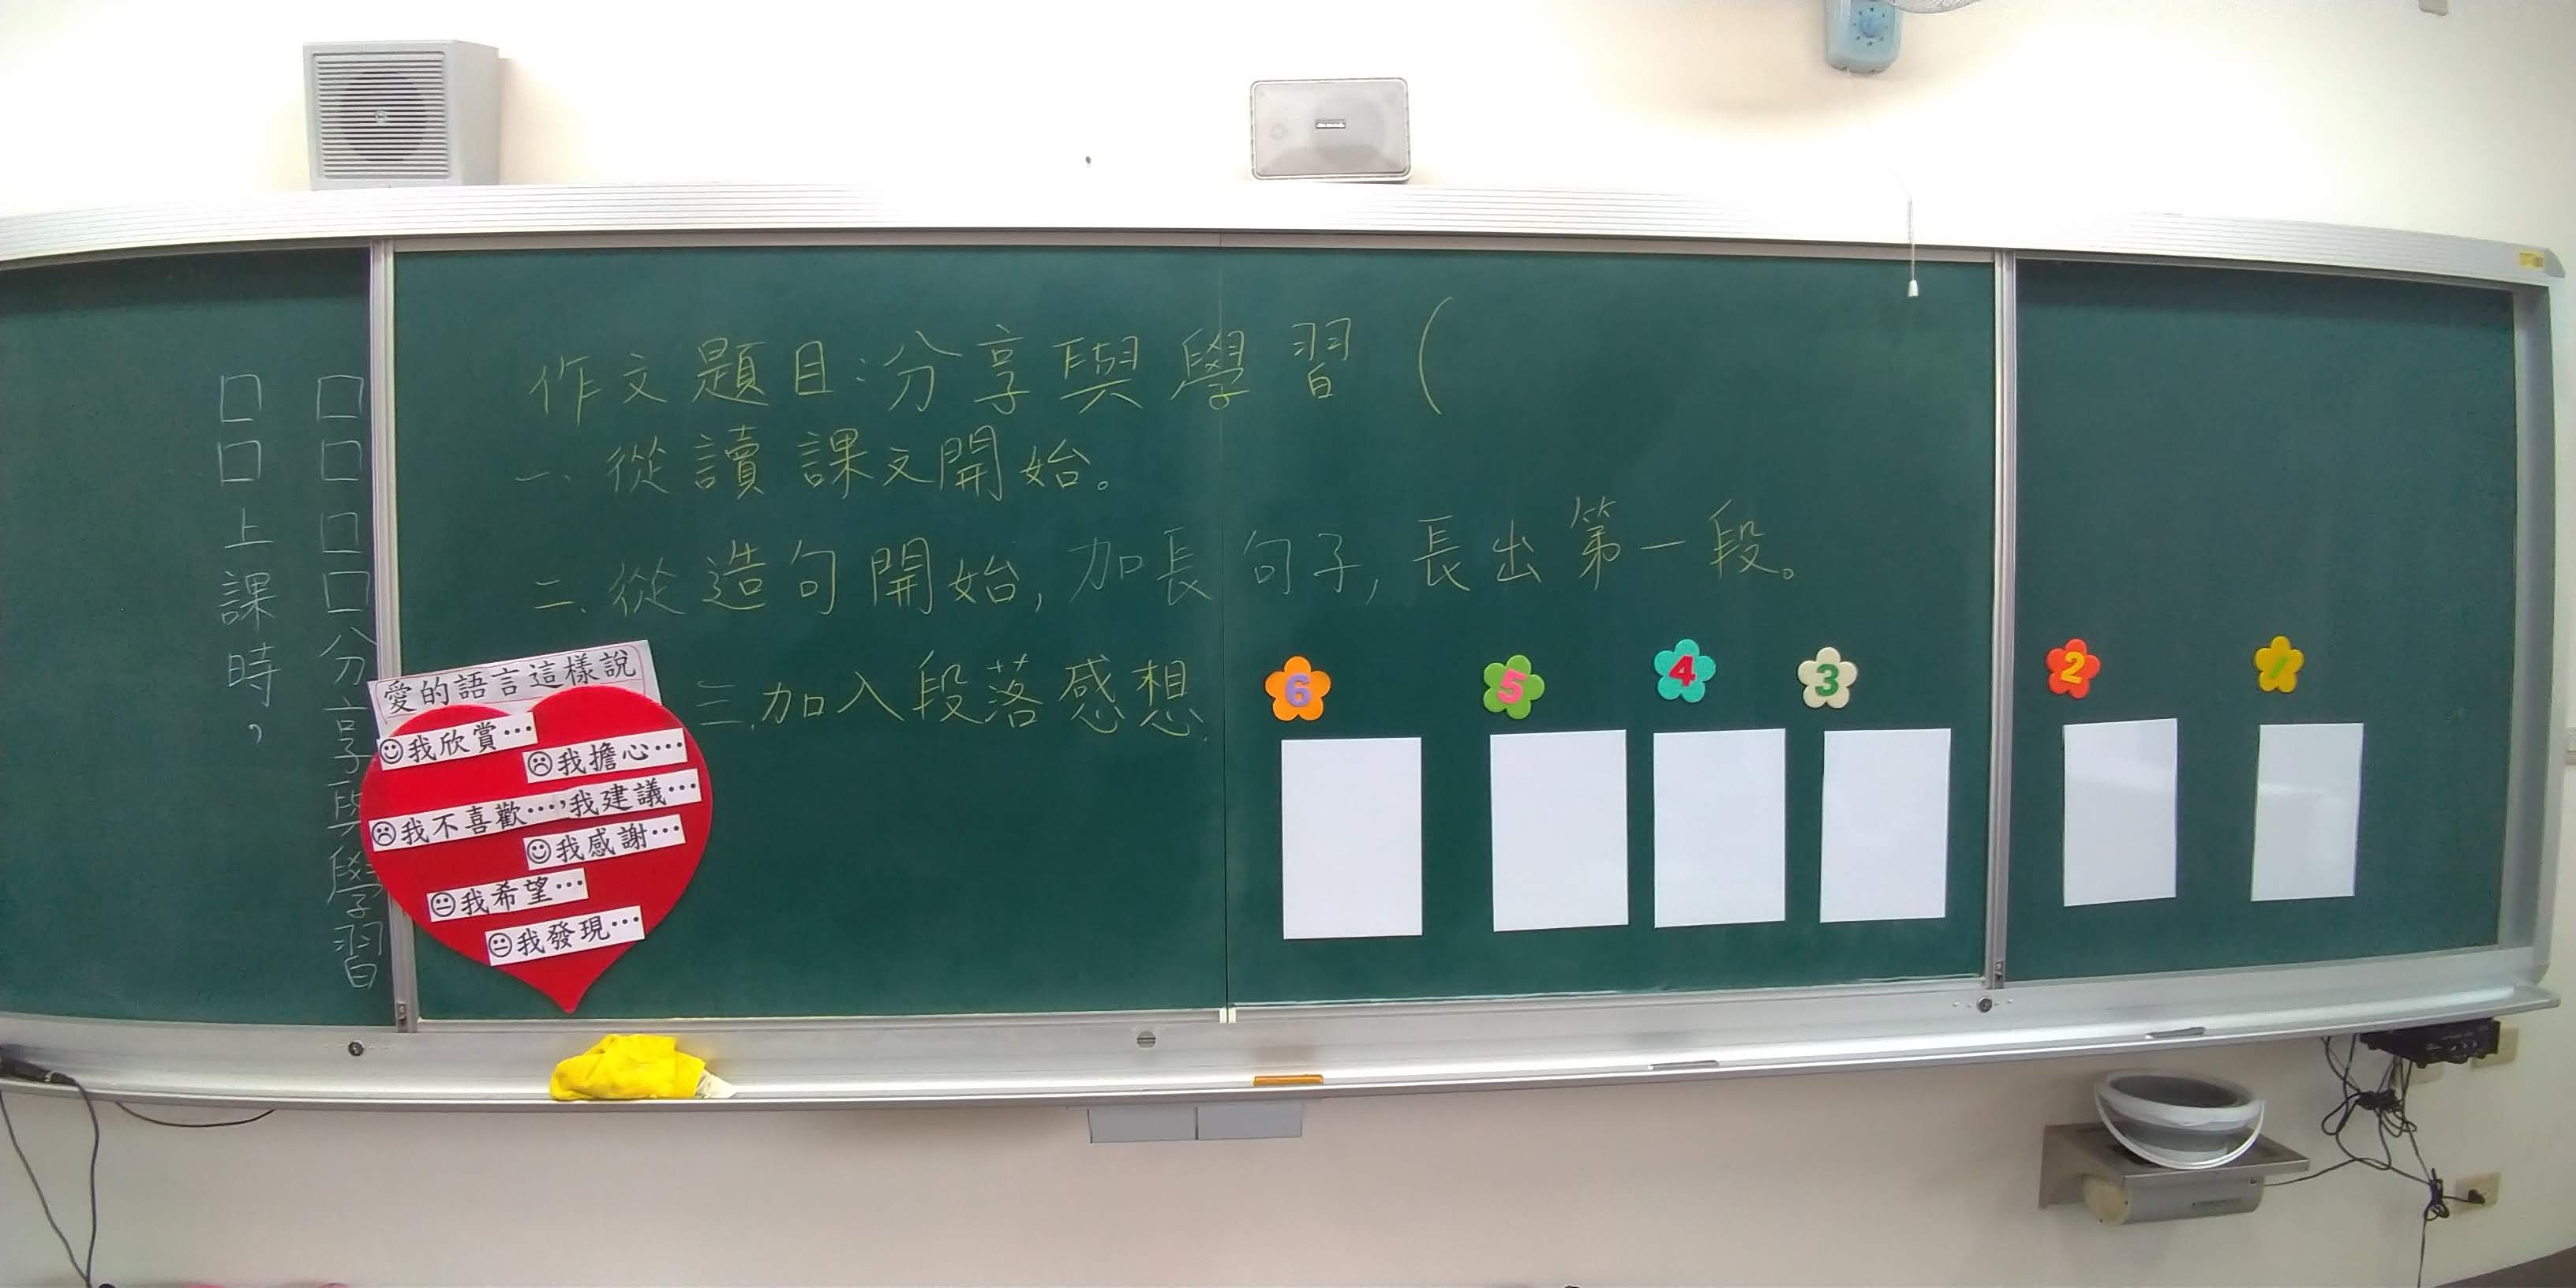 作文題目：分享與學習（
一、從讀課文開始。
二、從造句開始，加長句子，長出第一段。
三、加入段落感想
□□□□分享與學習
□□上課時，
愛的語言這樣說
我欣賞…
我擔心…
我不喜歡…，我建議…
我感謝…
我希望…
我發現…
6 5 4 3 2 1